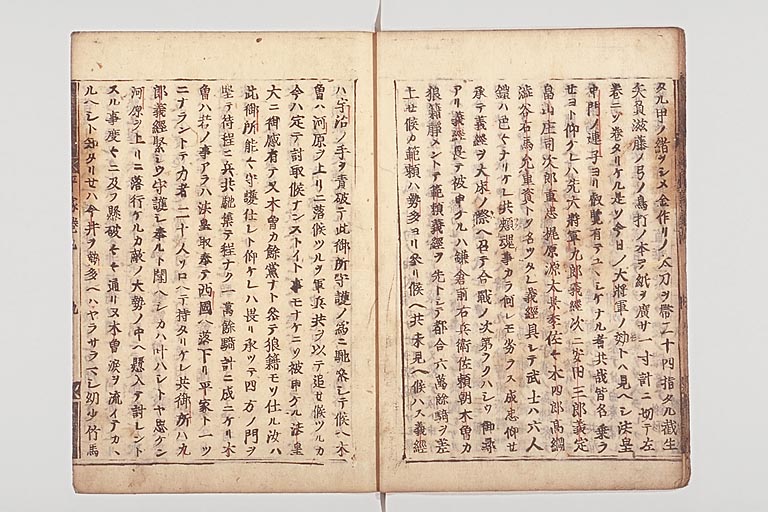 タル甲ノ緒ツシメ金作リノ太刀ヲ帯二十四指タル截生
矢負滋藤ノ弓ノ鳥打ノ本テ紙ヲ廣サ一寸計ニ切テ左
巻ニソ巻タリケル是ソ今日ノ大将軍ノ効トハ見ヘシ法皇
中門ノ連子ヨリ叡覧有テユヽシケナル者共哉皆名乗ラ
セヨト仰ケレハ先大将軍九郎義經次ニ安田三郎義定
畠山庄司次郎重忠梶原源太景季佐々木四郎高綱
渋谷右馬允重資トソ名ツタレ義經具シテ武士ハ六人
鎧ハ色々ナリケレ共頬魂事カラ何レモ劣ラス成忠仰セ
承テ義經ヲ大床ノ際ヘ召テ合戦ノ次第クハシク御尋
アリ義經畏テ被申ケルハ鎌倉前右兵衛佐頼朝木曽カ
狼籍静メントテ範頼義經ヲ先トシテ都合六萬餘騎ヲ差
上セ候カ範頼ハ勢多ヨリ参リ候ヘ共未見ヘ候ハス義經
ハ宇治ノ手ヲ責破テ此御所守護ノ為ニ馳参シテ候ヘ木
曽ハ河原ヲ上リニ落候ツルヲ軍兵共ヲ以テ追セ候ツルカ
今ハ定テ討取候ナンストイト事モナケニソ被申ケル法皇
大ニ御感有テ又木曽カ餘黨ナト参テ狼籍モソ仕ル汝ハ
此御所能々守護仕レト仰ケレハ畏リ承ツテ四方ノ門ヲ
堅テ待程ニ兵共馳集テ程ナク一萬餘騎計ニ成ニケリ木
曽ハ若ノ事アラハ法皇取奉テ西國ヘ落下リ平家ト一ツ
ニナラントテ力者二十人ソロヘテ持タリケレ共御所ハ九
郎義經緊シウ守護シ奉ルト聞ヘシカハ叶ハシトヤ思ケン
河原ヲ上リニ落行ケルカ敵ノ大勢ノ中ヘ懸入テ討レント
スル事度々ニ及フ懸破々々通リヌ木曽涙ヲ流イテカヽ
ルヘシト知タリセハ今井ヲ勢多ヘハヤラサラマシ幼少竹馬